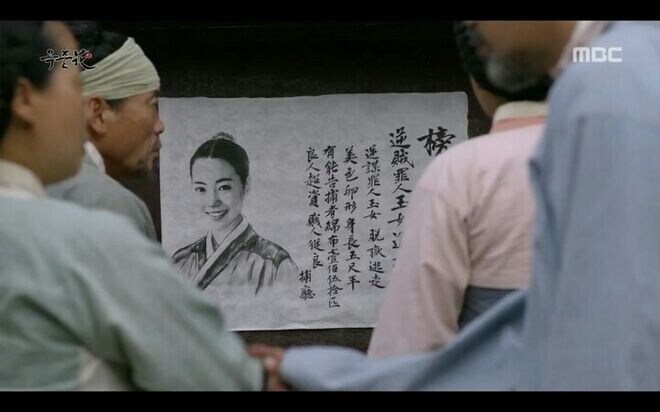 옥중화
MBC
榜
逆賊罪人玉女
逆謀罪人玉女 脫獄逃走
美色卵形身長五尺半
有能告捕者綿布壹佰伍拾匹
良人超資 賤人從良
捕廳